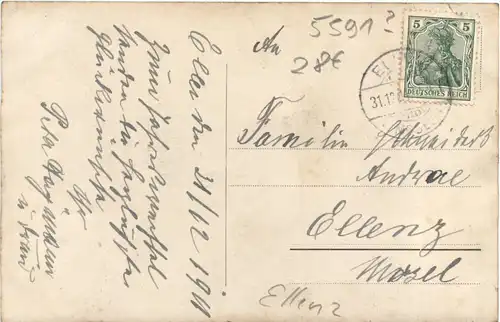 5591?
28€
An
5 5
DEUTSCHES REICH
EL
31.12
Familie Schneiders
Andrae
Ellenz
Mosel
Ellenz
den 31/12 19 11
Zum Jahreswechsel
senden die herzlichsten
Glückwünsche
Ihr
Peter
u Frau